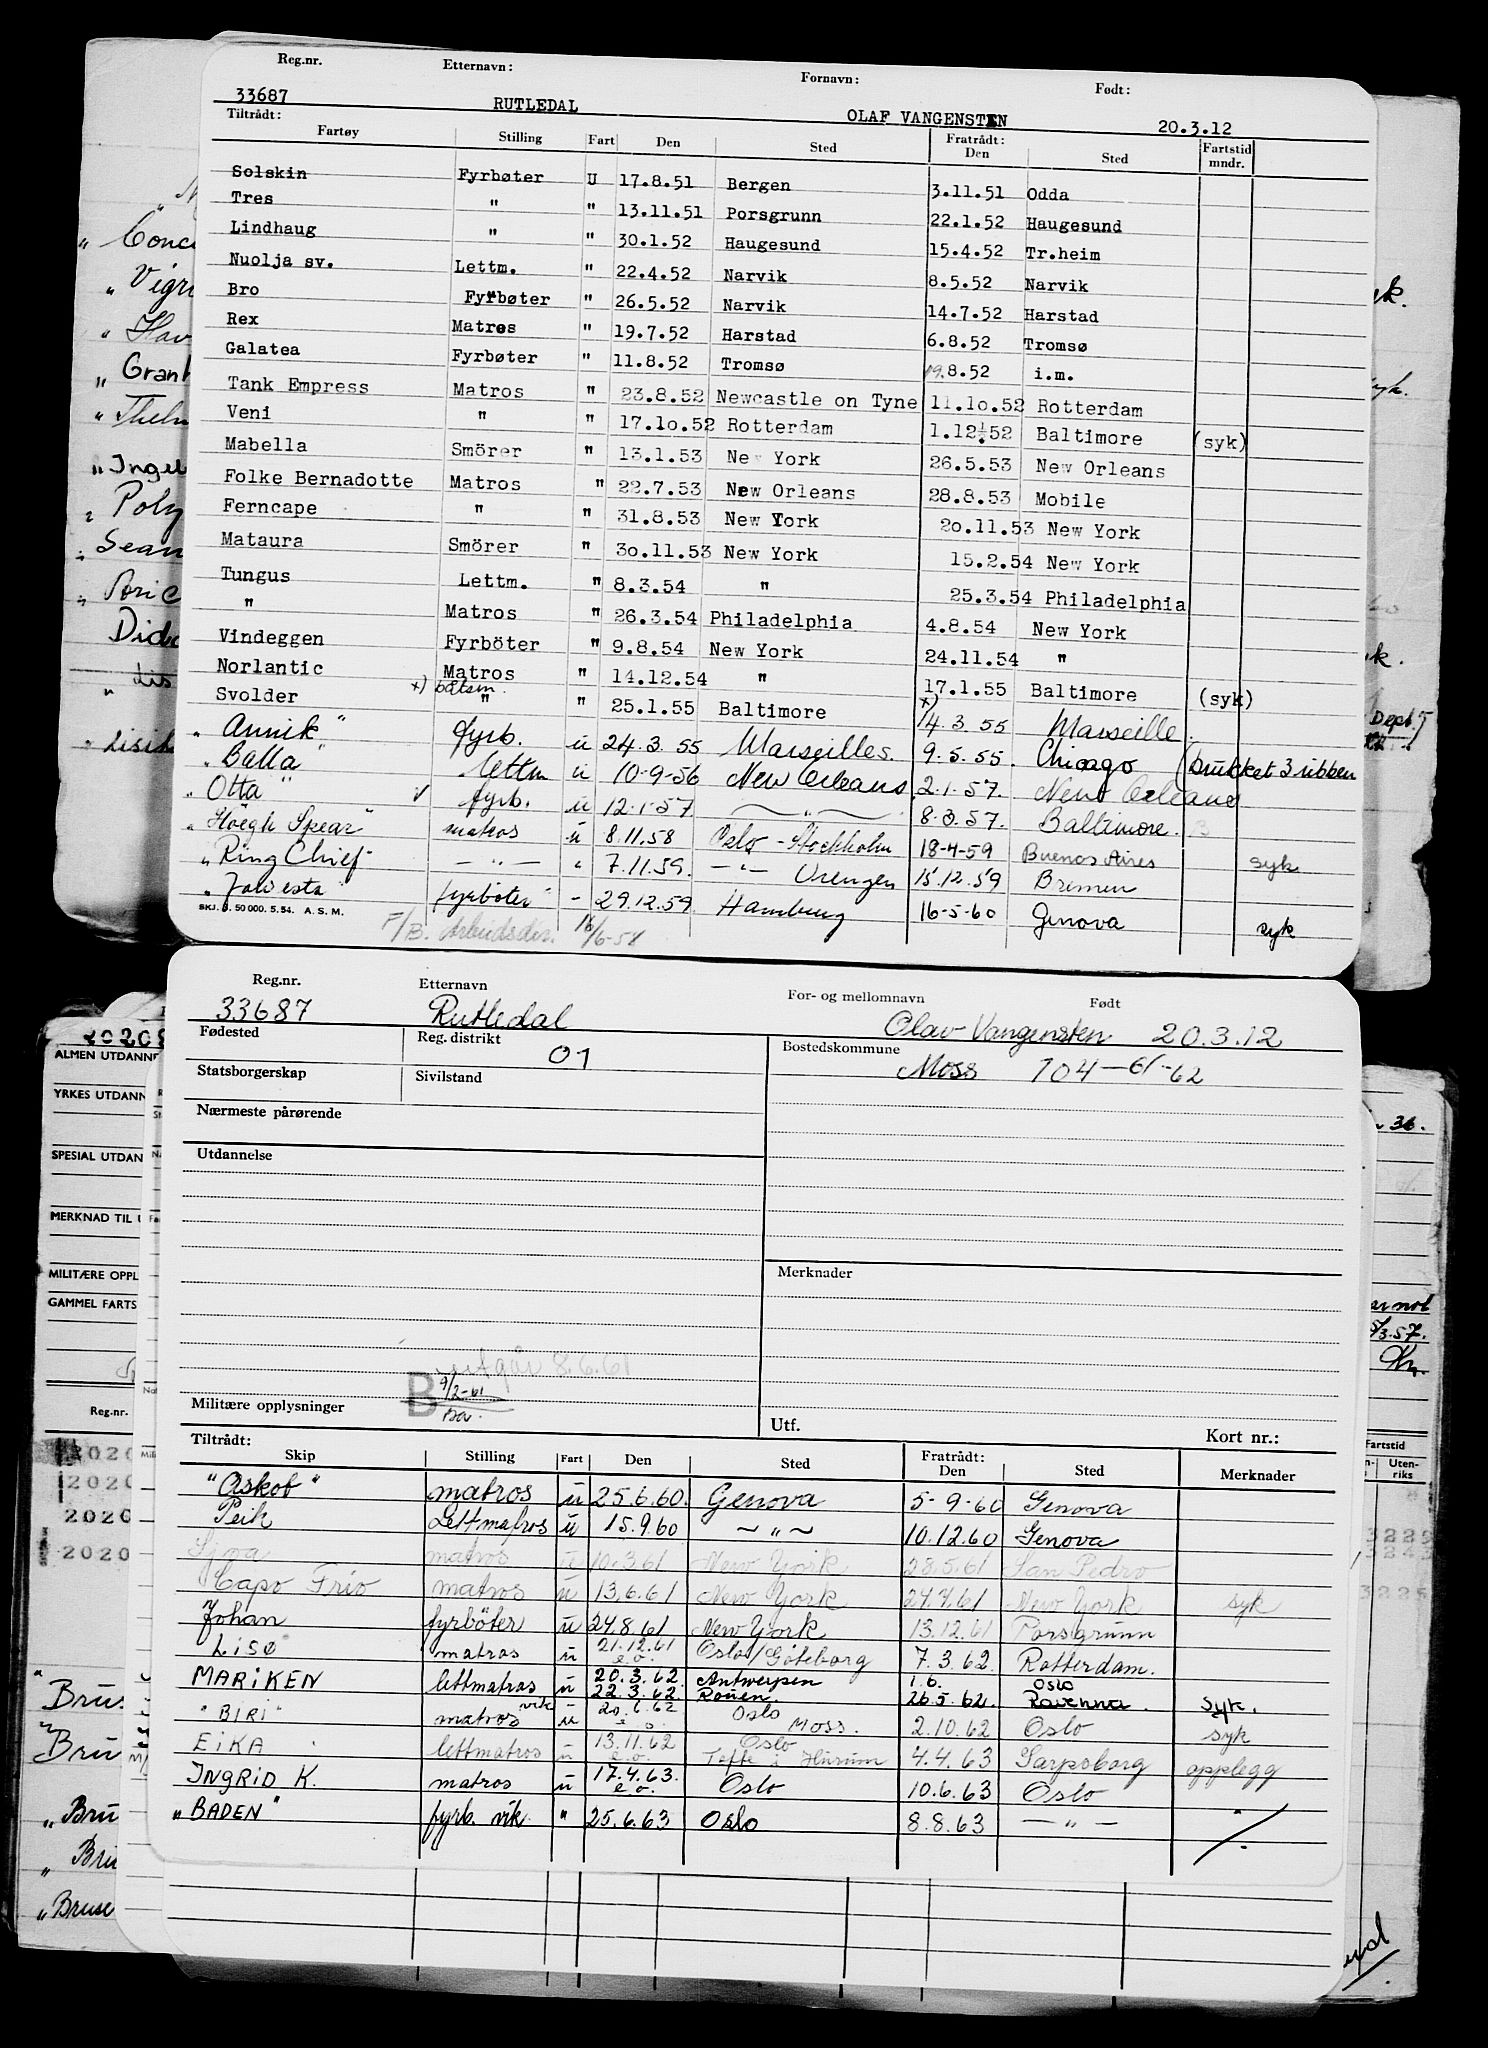 Reg.nr. Etternavn: Fornavn: Født:
33687 RUTLEDAL OLAF VANGENSTEN 20.3.12
Tiltrådt: Fratrådt:
Fartøy Stilling Fart Den Sted Den Sted Fartstid mndr.
Solskin Fyrbøter U 17.8.51 Bergen 3.11.51 Odda
Tres " " 13.11.51 Porsgrunn 22.1.52 Haugesund
Lindhaug " " 30.1.52 Haugesund 15.4.52 Tr.heim
Nuolja sv. Lettm. " 22.4.52 Narvik 8.5.52 Narvik
Bro Fyrbøter " 26.5.52 Narvik 14.7.52 Harstad
Rex Matros " 19.7.52 Harstad 6.8.52 Tromsø
Galatea Fyrbøter " 11.8.52 Tromsø 19.8.52 i.m.
Tank Empress Matros " 23.8.52 Newcastle on Tyne 11.10.52 Rotterdam
Veni " " 17.10.52 Rotterdam 1.12.52 Baltimore (syk)
Mabella Smörer " 13.1.53 New York 26.5.53 New Orleans
Folke Bernadotte Matros " 22.7.53 New Orleans 28.8.53 Mobile
Ferncape " " 31.8.53 New York 20.11.53 New York
Mataura Smörer " 30.11.53 New York 15.2.54 New York
Tungus Lettm. " 8.3.54 " 25.3.54 Philadelphia
" Matros " 26.3.54 Philadelphia 4.8.54 New York
Vindeggen Fyrböter " 9.8.54 New York 24.11.54 "
Norlantic Matros " 14.12.54 " 17.1.55 Baltimore (syk)
Svolder x) båtsm. " " 25.1.55 Baltimore x) 14.3.55 Marseille.
" Annik " fyrb. u 24.3.55 Marseilles. 9.5.55. Chicago (brukket 3 ribben
" Balla " lettm u 10-9-56 New Orleans 2.1.57. New Orleans
" Otta " v fyrb. u 12.1.57 — " — 8.3.57. Baltimore.
" Höegh Spear" matros u 8.11.58 Oslo - Stockholm 18-4-59 Buenos Aires syk
" Ring Chief - — " — " 7.11.59. — " — Vrengen 15.12.59 Bremen
" Jalvesta fyrböter - 29.12.59 Hamburg 16-5-60 Genova syk
SKJ. B. 50 000. 5.54. A.S.M.
F/B. Arbeidsdir. 16/6-58
Reg.nr. Etternavn For- og mellomnavn Født
33687 Rutledal Olav Vangensten 20.3.12
Fødested Reg. distrikt 01 Bostedskommune
Moss 104-61-62
Statsborgerskap Sivilstand
Nærmeste pårørende
Utdannelse
Merknader
utgår 8.6.61
B 9/2-61
Militære opplysninger Utf. Kort nr.:
Tiltrådt: Fratrådt:
Skip Stilling Fart Den Sted Den Sted Merknader
"Askot" matros u 25.6.60. Genova 5-9-60 Genova
Peik Lettmatros u 15.9.60 ~ " ~ 10.12.60 Genova
Sira matros u 10.3.61 New York 28.5.61 San Pedro
Capo Frio matros u 13.6.61 New York 24.7.61 New York syk
Johan fyrböter u 24.8.61 New York 13.12.61 Porsgrunn
LISØ matros u 21.12.61 e.o. Oslo/Göteborg 7.3.62. Rotterdam.
MARIKEN lettmatros u 20.3.62. 22.3.62. Antwerpen Rouen. i.b. 26.5.62. Oslo Ravenna. syk.
"BIRI" matros vik u 20.6.62 e.o. Oslo Moss. 2.10.62 Oslo syk
EIKA lettmatros u 13.11.62 e.o. Oslo Tofte i Hurum 4.4.63 Sarpsborg opplegg
INGRID K. matros u 17.4.63. e.o. Oslo 10.6.63 Oslo
"BADEN" fyrb. vik. " 25.6.63 Oslo 8.8.63 — " —
20209
ALMEN UTDANNE
YRKES UTDANN
SPESIAL UTDAN
MERKNAD TIL U
MILITÆRE OPPL
GAMMEL FARTS
Reg.nr.
2020
2020
2020
2020
Fartstid
Uten-riks
"Bruse